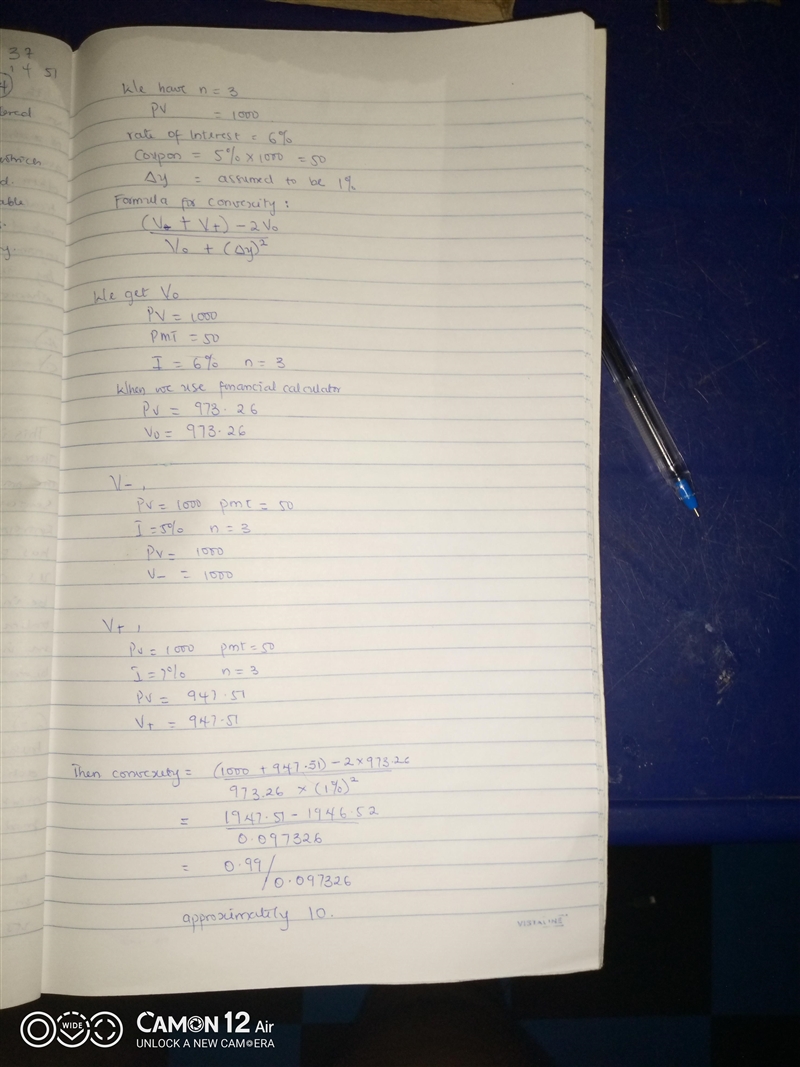 37
1 4 51
We have n = 3
PV = 1000
rate of interest = 6%
Coupon = 5% × 1000 = 50
Δy = assumed to be 1%
Formula for convexity:
(V- + V+) - 2V0
V0 + (Δy)²
We get V0
PV = 1000
PMT = 50
I = 6% n = 3
When we use financial calculator
PV = 973.26
V0 = 973.26
V-,
PV = 1000 pmt = 50
I = 5% n = 3
PV = 1000
V- = 1000
V+,
PV = 1000 pmt = 50
I = 7% n = 3
PV = 947.51
V+ = 947.51
Then convexity = (1000 + 947.51) - 2 × 973.26
973.26 × (1%)²
= 1947.51 - 1946.52
0.097326
= 0.99/0.097326
approximately 10.
WIDE
CAMON 12 Air
UNLOCK A NEW CAMERA